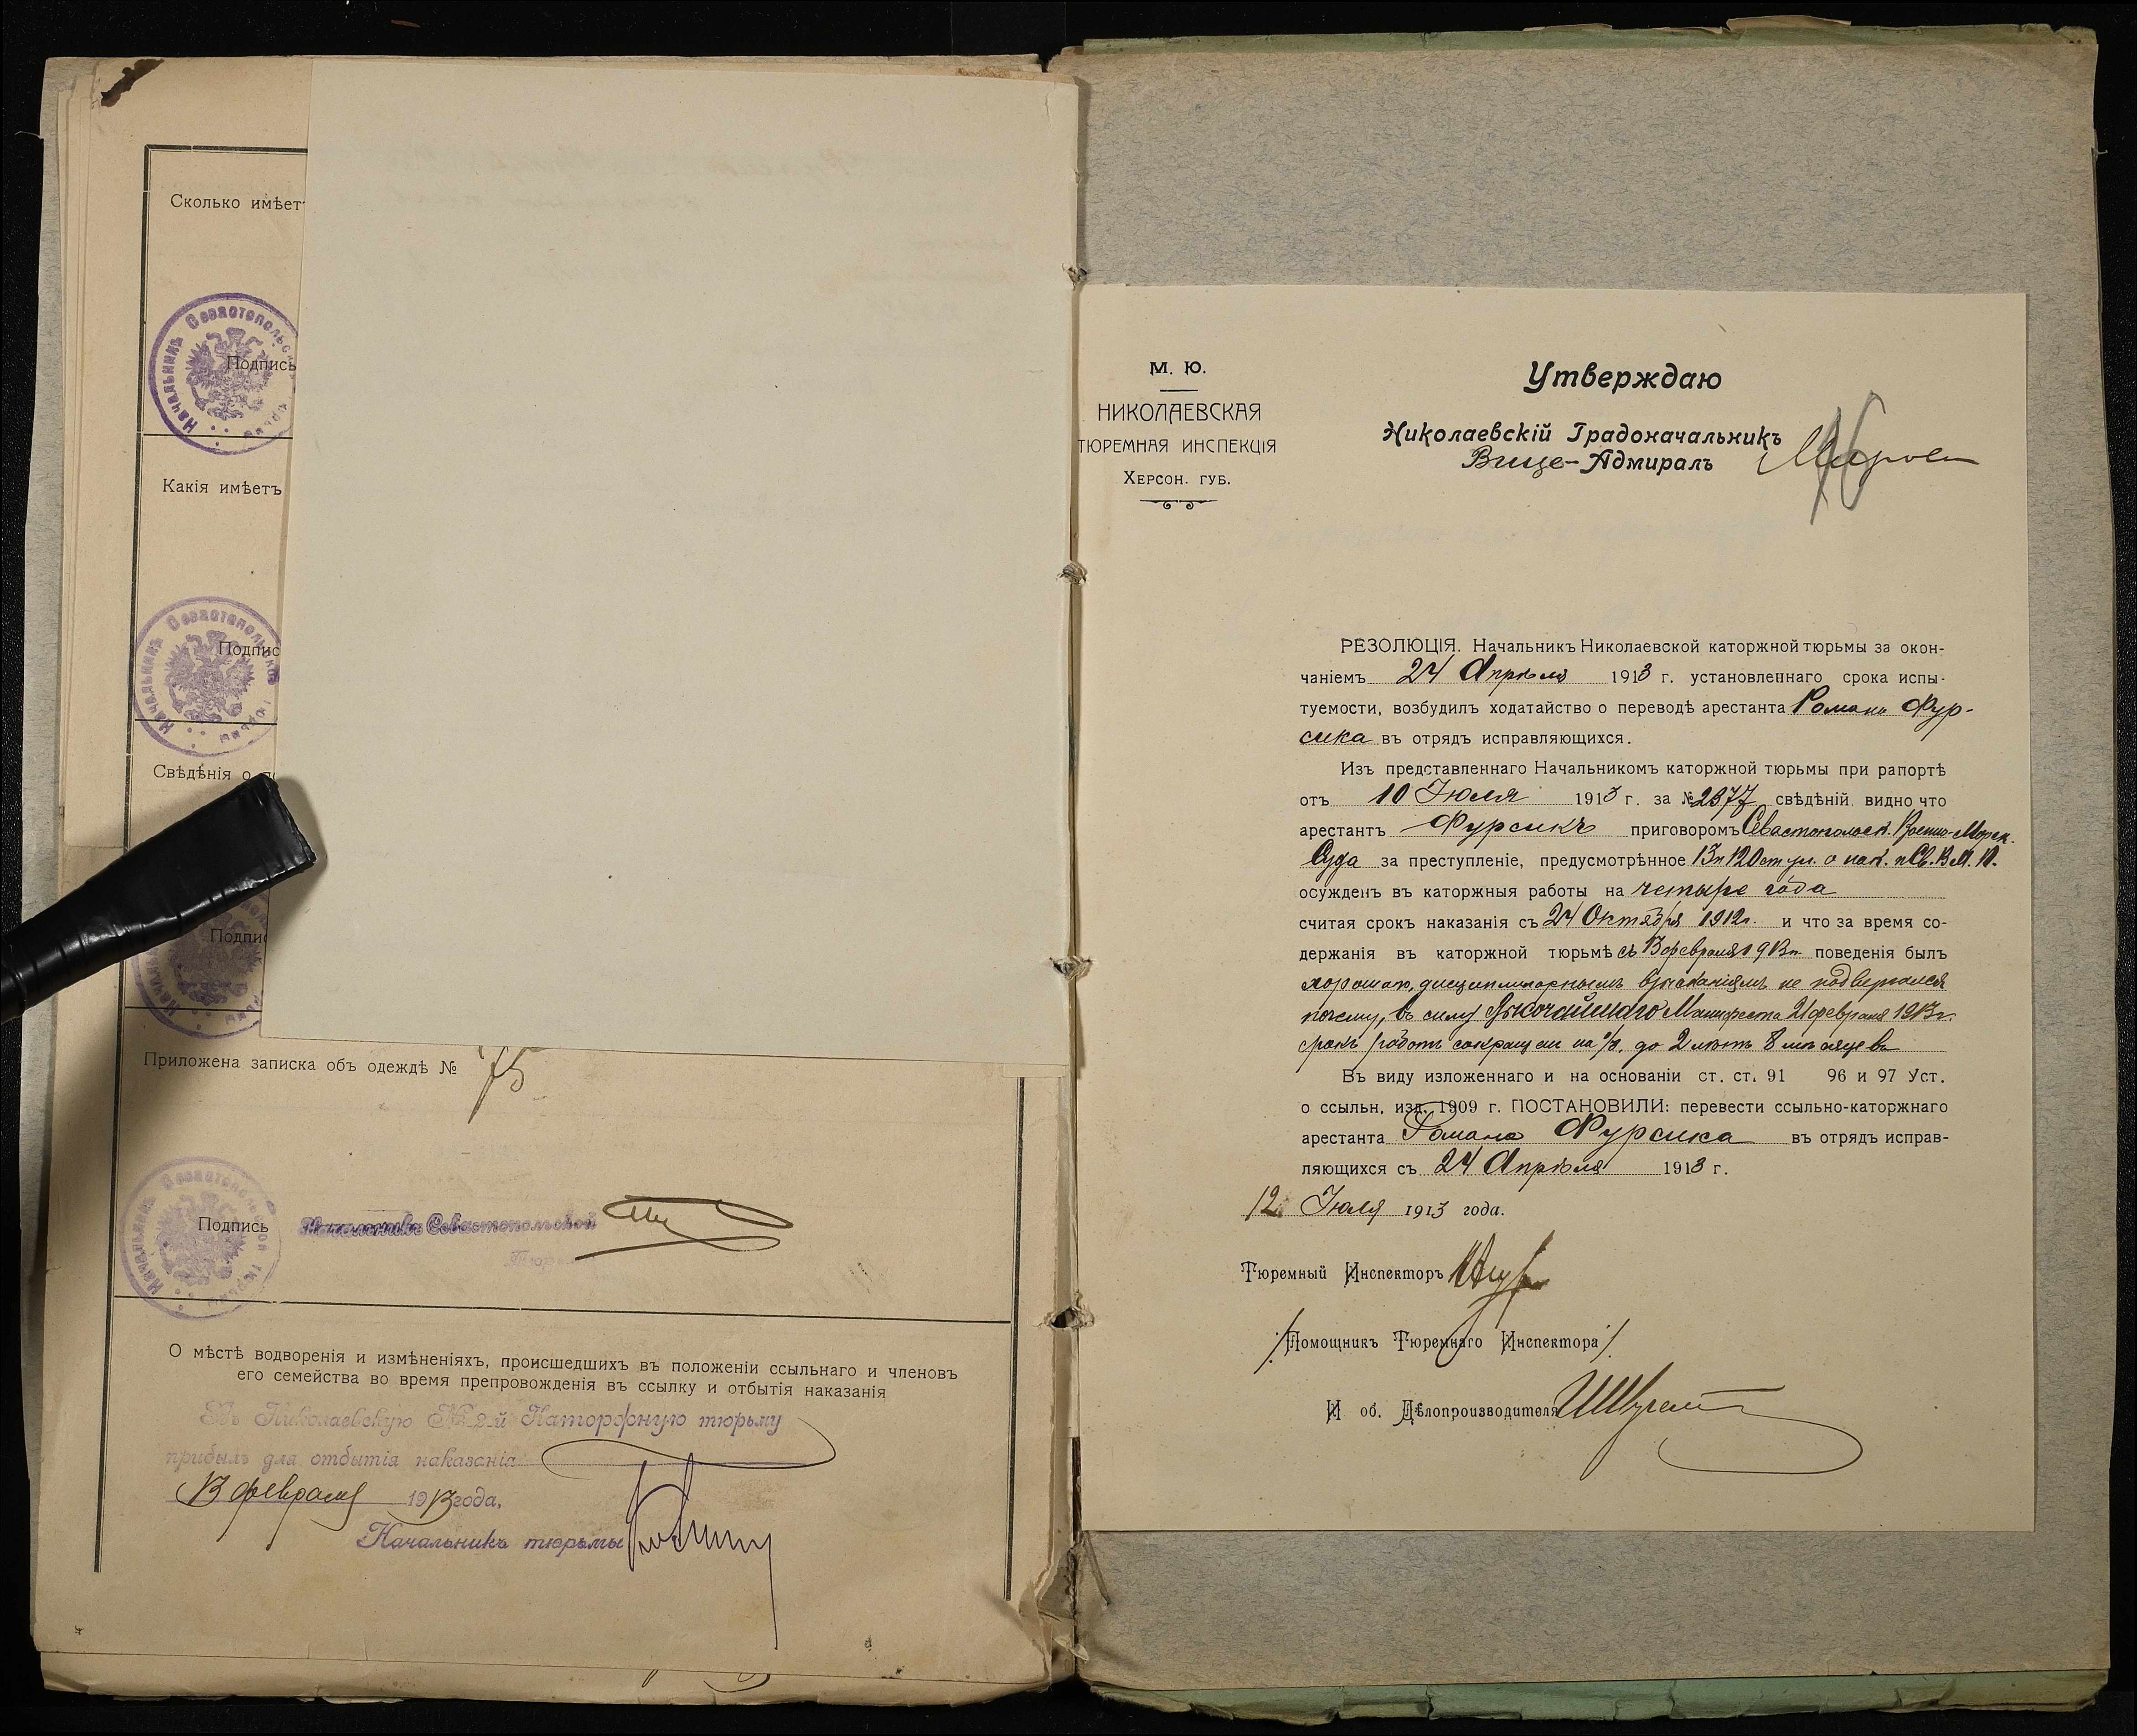 Сколько имѣет
Начальникъ Севастопольс
Подпись
Какія имѣетъ
Начальникъ Севастопольской тюрьмы
Подпис
Свѣдѣнія о п
Подпис
Приложена записка объ одеждѣ № 75
Начальникъ Севастопольской тюрьмы
Подпись Начальникъ Севастопольской
Тюрь
О мѣстѣ водворенія и измѣненіяхъ, происшедшихъ въ положеніи ссыльнаго и членовъ
его семейства во время препровожденія въ ссылку и отбытія наказанія
Въ Николаевскую № 2-й Каторжную тюрьму
прибылъ для отбытія наказанія
13 февраля 1913 года,
Начальникъ тюрьмы
М. Ю.
НИКОЛАЕВСКАЯ
ТЮРЕМНАЯ ИНСПЕКЦІЯ
ХЕРСОН. ГУБ.
Утверждаю
Николаевскій Градоначальникъ
Вице-Адмиралъ
РЕЗОЛЮЦІЯ. Начальникъ Николаевской каторжной тюрьмы за окон-
чаніемъ 24 Апрѣля 1913 г. установленнаго срока испы-
туемости, возбудилъ ходатайство о переводѣ арестанта Романа Фур-
сика въ отрядъ исправляющихся.
Изъ представленнаго Начальникомъ каторжной тюрьмы при рапортѣ
отъ 10 Іюля 1913 г. за № 2377 свѣдѣній видно что
арестантъ Фурсикъ приговоромъ Севастопольск. Военно-Морск.
Суда за преступленіе, предусмотрѣнное 13 и 120 ст ул. о нак. Св. В М. П.
осужденъ въ каторжныя работы на четыре года
считая срокъ наказанія съ 24 Октября 1912 г. и что за время со-
держанія въ каторжной тюрьмѣ съ 13 февраля 1913 г. поведенія былъ
хорошаго, дисциплинарнымъ взысканіямъ не подвергался
почему, въ силу Высочайшаго Манифеста 21 февраля 1913 г.
срокъ работъ сокращен на ⅓. до 2 лѣтъ 8 мѣсяцевъ
Въ виду изложеннаго и на основаніи ст. ст. 91 96 и 97 Уст.
о ссыльн. изд. 1909 г. ПОСТАНОВИЛИ: перевести ссыльно-каторжнаго
арестанта Романа Фурсика въ отрядъ исправ-
ляющихся съ 24 Апрѣля 1913 г.
12 Іюля 1913 года.
Тюремный Инспекторъ
/Помощникъ Тюремнаго Инспектора/.
И об. Дѣлопроизводителя